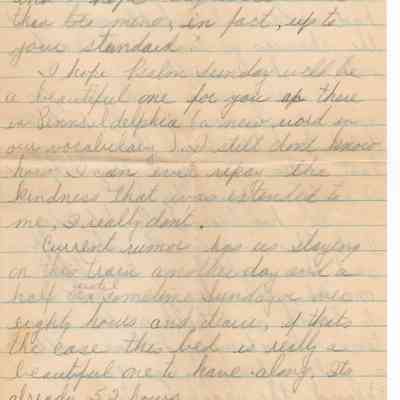 than to's mine, in fact, up to
your standard."
I hope Psalm Sunday will be
a beautiful one for you up there
in Pennsyldelphia (a new word in
our vocabulary). I still dont know
how I can ever repay the
kindness that was extended to
me, I really dont.
Current rumor has us staying
on this train another day and a
half until sometime Sunday
eighty hours and, dear, if thats
the case this bed is really a
beautiful one to have along. Its
already 52 hours